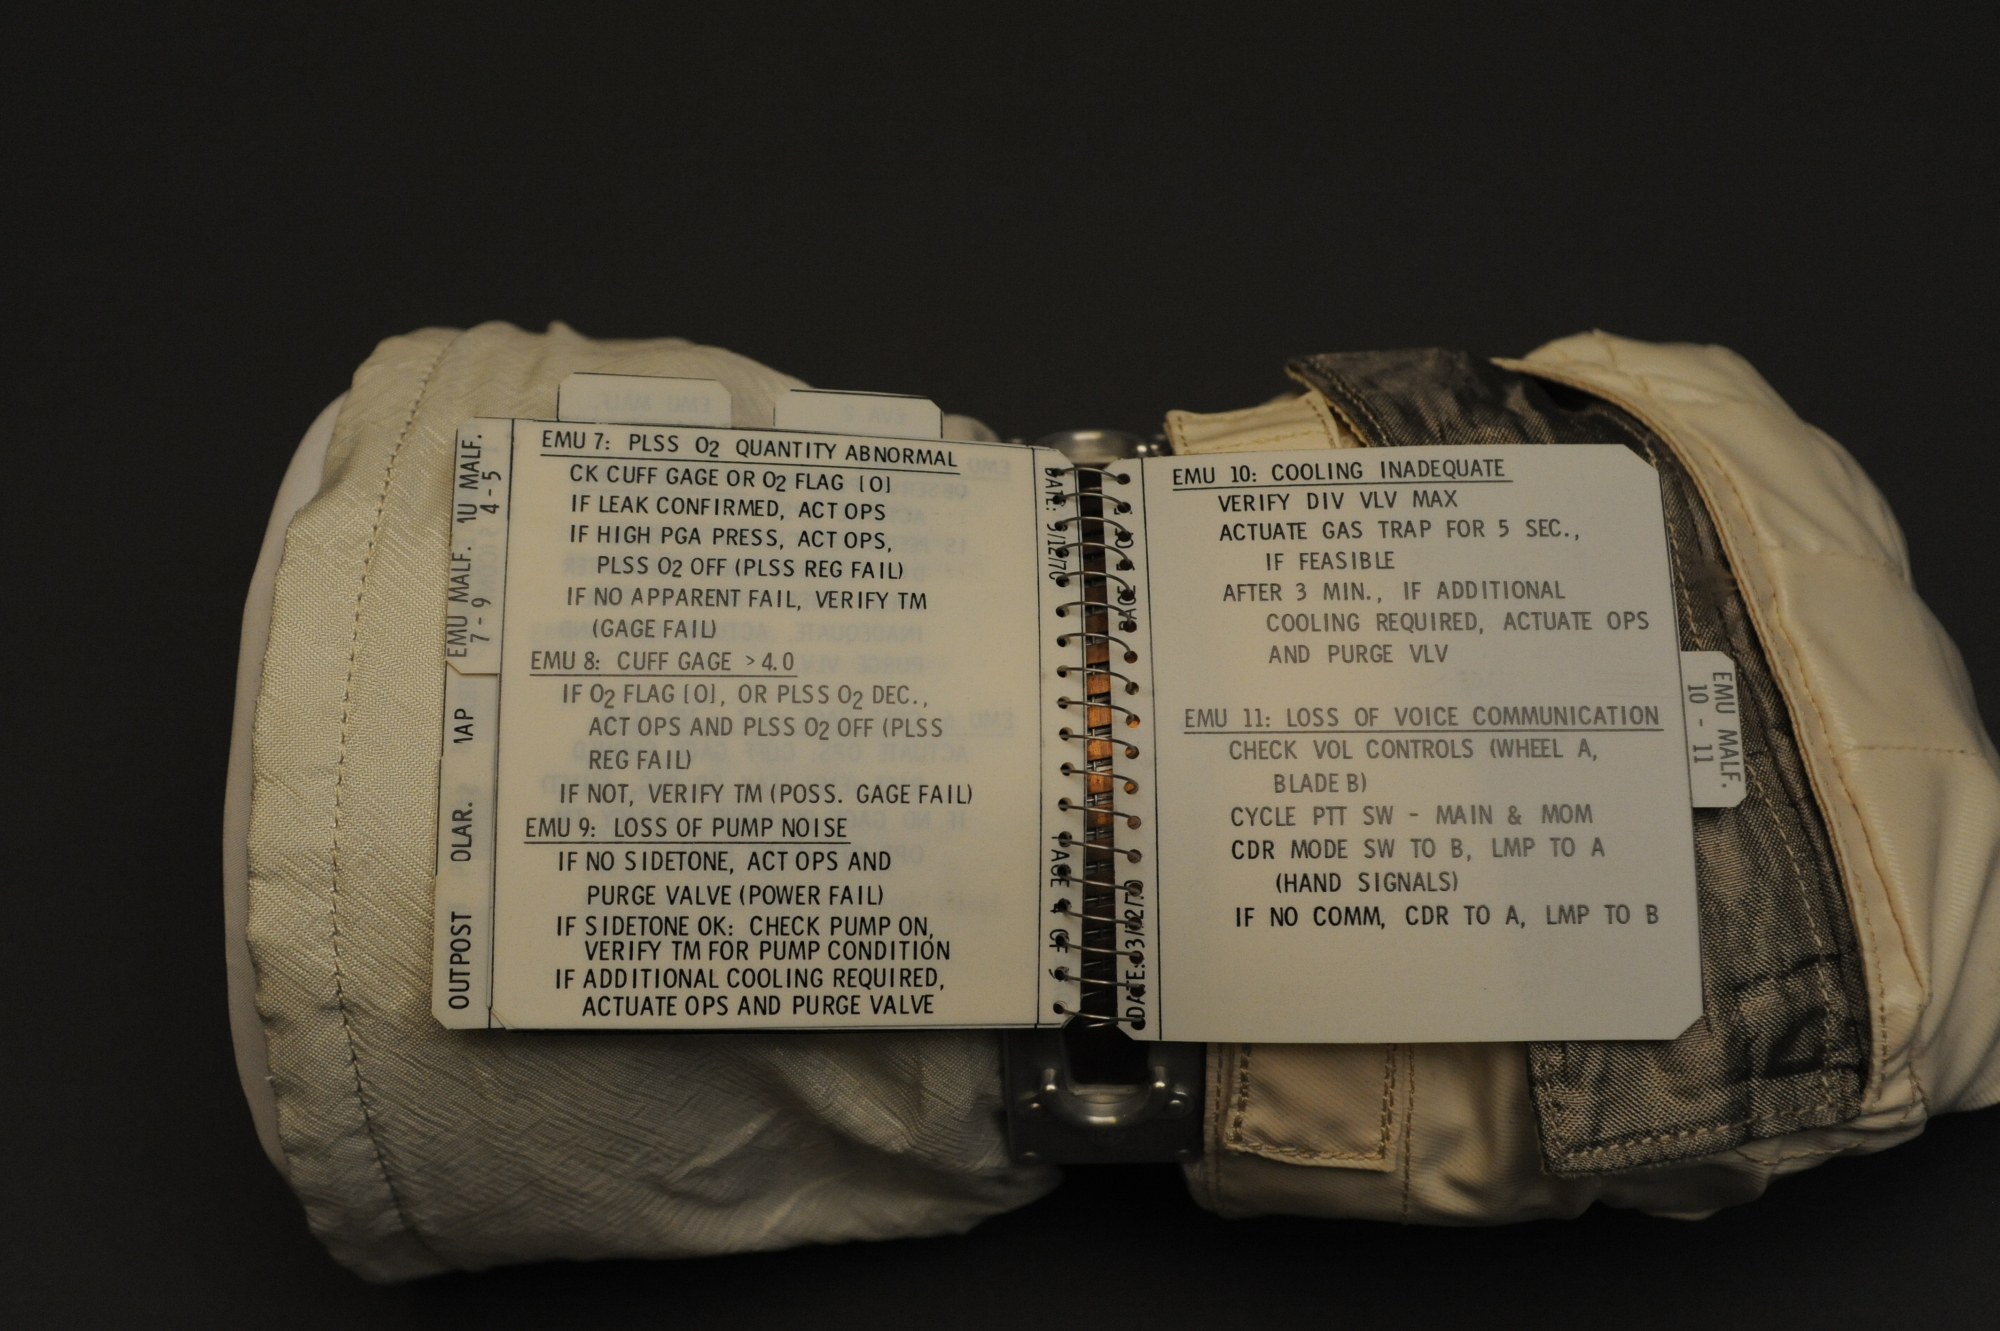 EMU MALF.
7 - 9
1U MALF.
4 - 5
1AP
OLAR.
OUTPOST
EMU 7: PLSS O2 QUANTITY ABNORMAL
CK CUFF GAGE OR O2 FLAG [O]
IF LEAK CONFIRMED, ACT OPS
IF HIGH PGA PRESS, ACT OPS,
PLSS O2 OFF (PLSS REG FAIL)
IF NO APPARENT FAIL, VERIFY TM
(GAGE FAIL)
EMU 8: CUFF GAGE >4.0
IF O2 FLAG [O], OR PLSS O2 DEC.,
ACT OPS AND PLSS O2 OFF (PLSS
REG FAIL)
IF NOT, VERIFY TM (POSS. GAGE FAIL)
EMU 9: LOSS OF PUMP NOISE
IF NO SIDETONE, ACT OPS AND
PURGE VALVE (POWER FAIL)
IF SIDETONE OK: CHECK PUMP ON,
VERIFY TM FOR PUMP CONDITION
IF ADDITIONAL COOLING REQUIRED,
ACTUATE OPS AND PURGE VALVE
DATE:
PAGE 4 OF
PAGE
DATE:
EMU 10: COOLING INADEQUATE
VERIFY DIV VLV MAX
ACTUATE GAS TRAP FOR 5 SEC.,
IF FEASIBLE
AFTER 3 MIN., IF ADDITIONAL
COOLING REQUIRED, ACTUATE OPS
AND PURGE VLV
EMU 11: LOSS OF VOICE COMMUNICATION
CHECK VOL CONTROLS (WHEEL A,
BLADE B)
CYCLE PTT SW - MAIN & MOM
CDR MODE SW TO B, LMP TO A
(HAND SIGNALS)
IF NO COMM, CDR TO A, LMP TO B
EMU MALF.
10 - 11